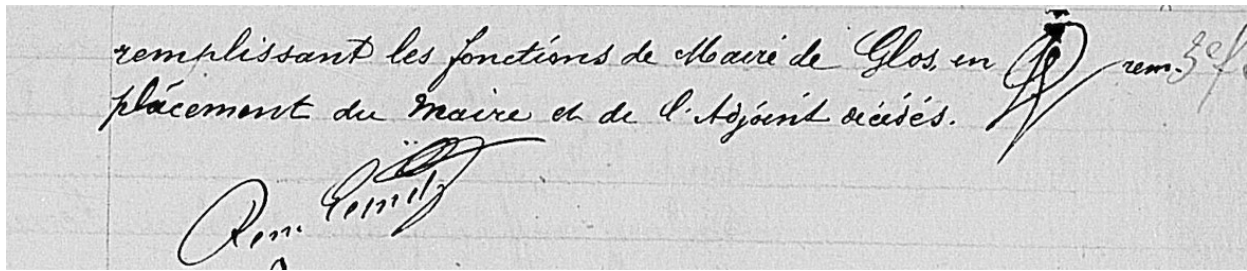 remplissant les fonctions de Maire de Glos, en rem-
placement du Maire et de l'Adjoint décédés.